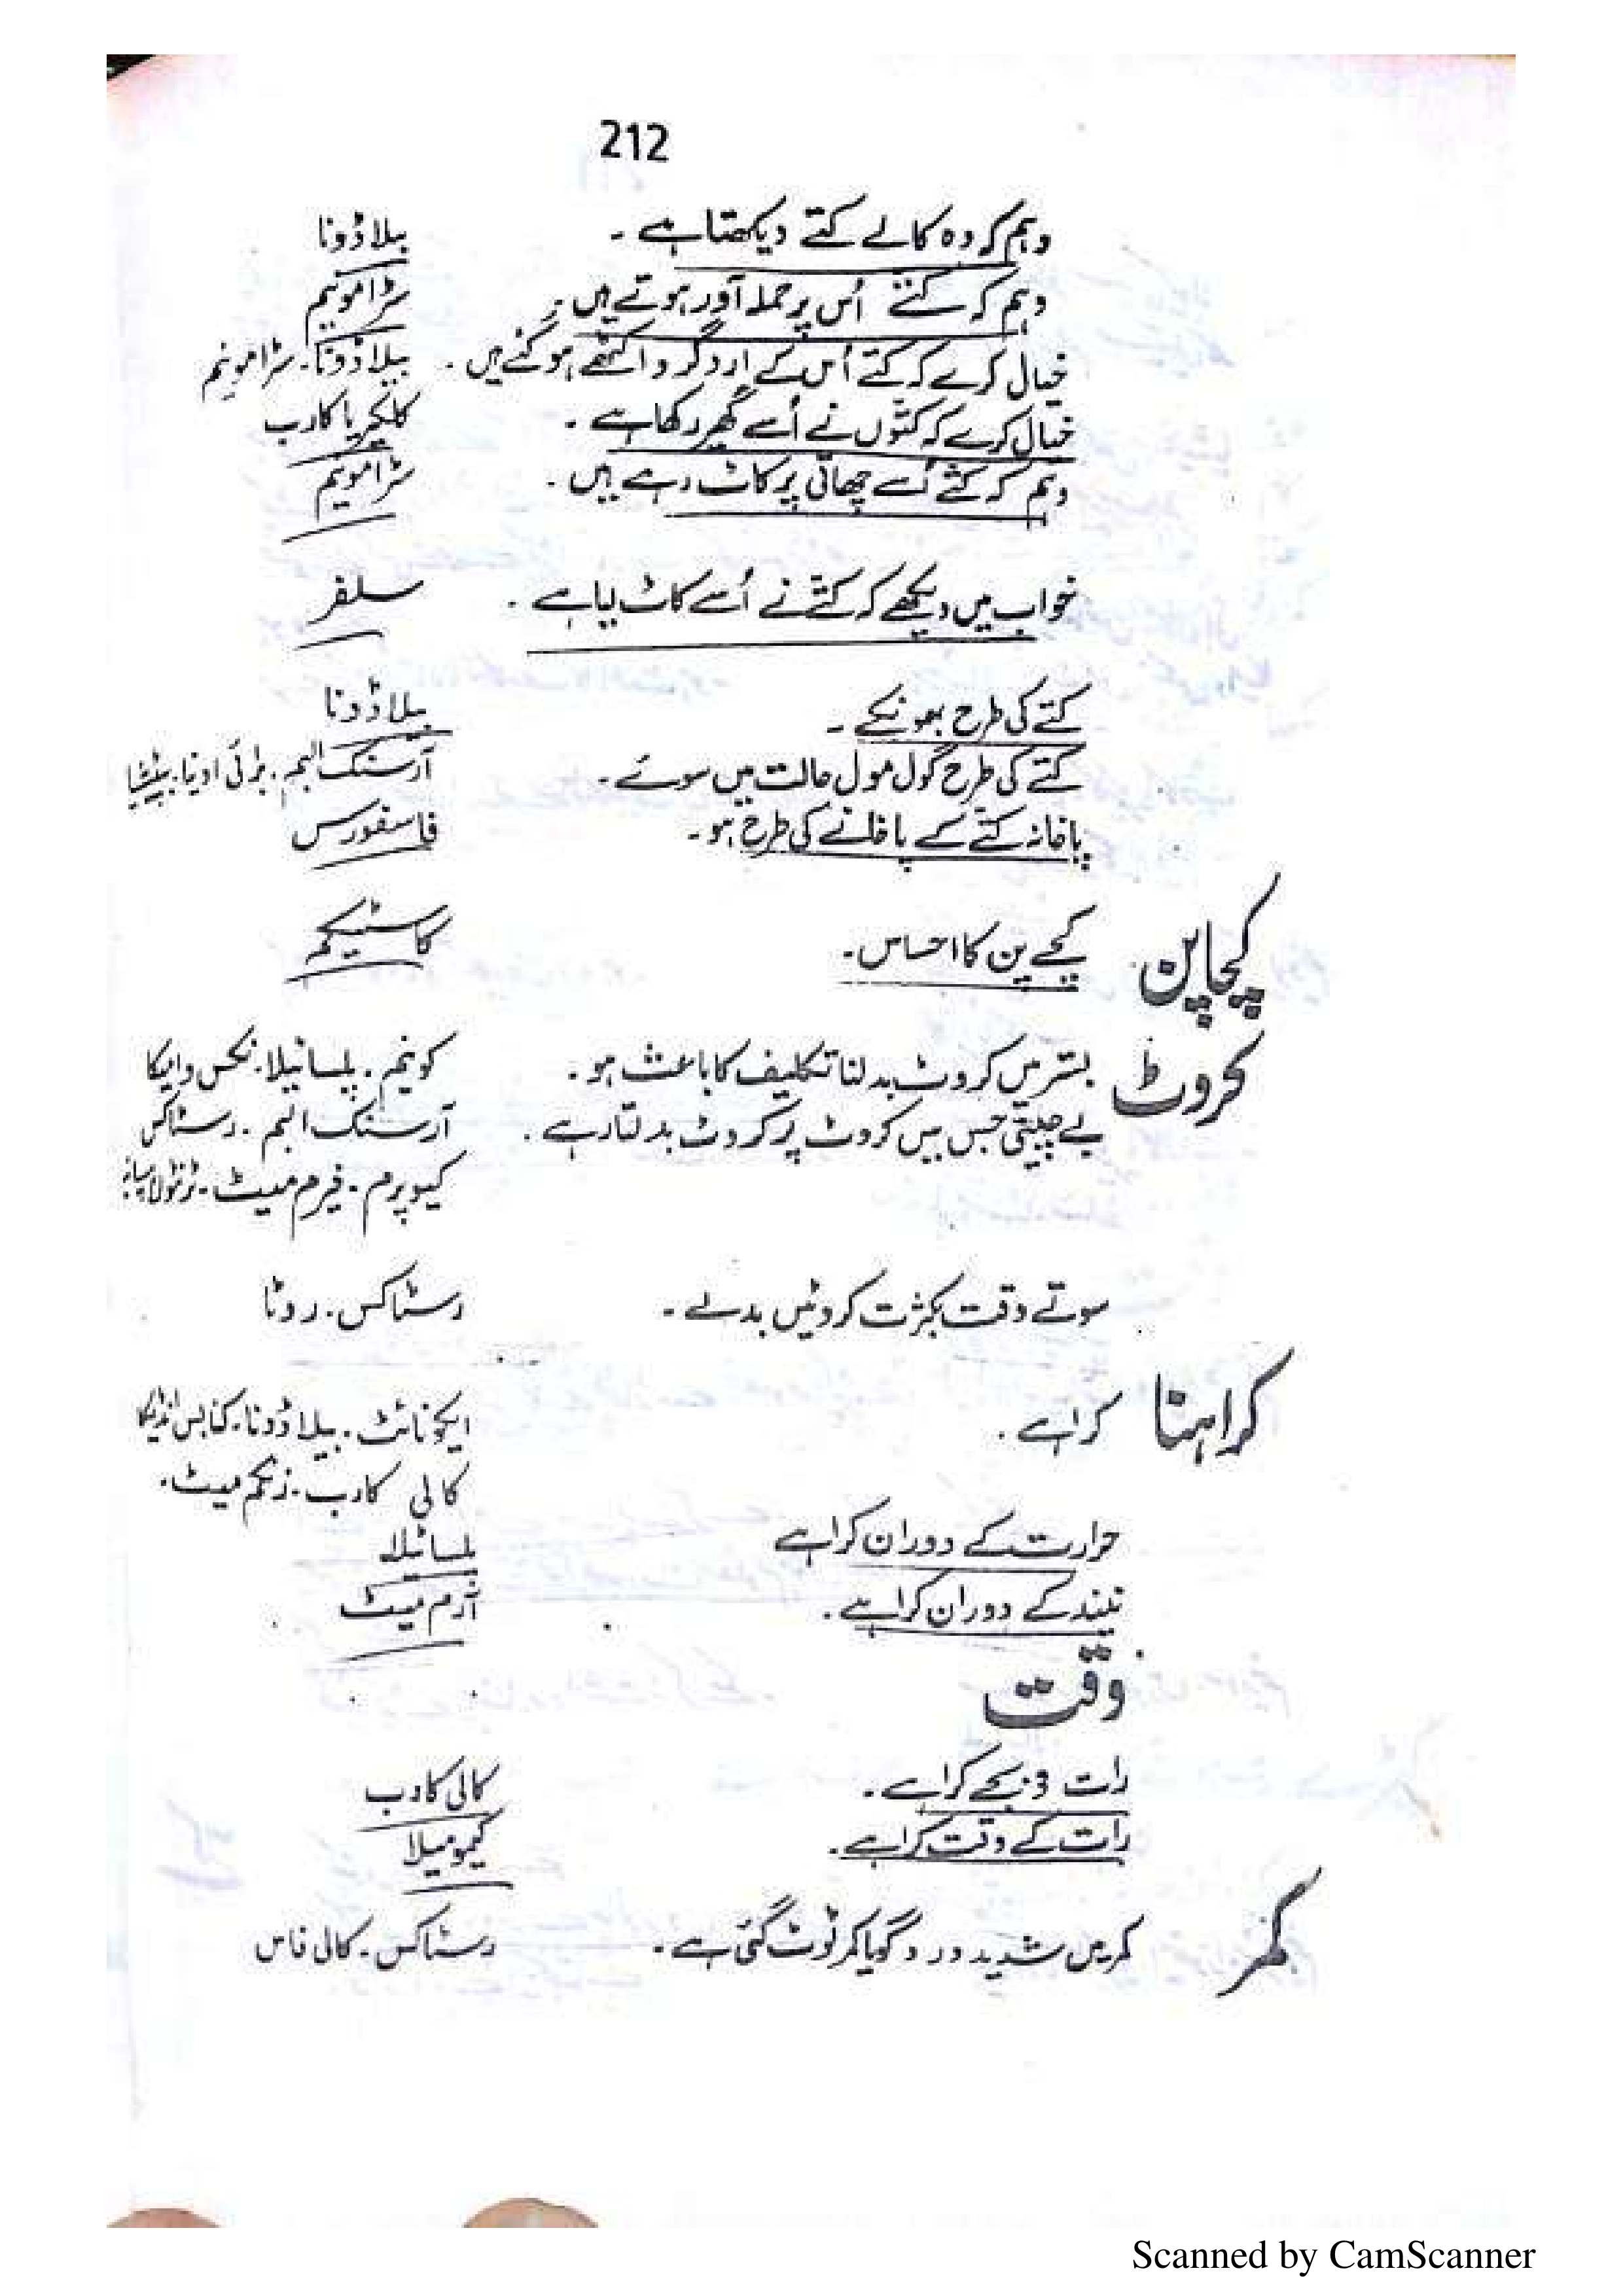 212
وہم کہ وہ کالے کتے دیکھتا ہے ۔ بیلاڈونا
وہم کہ کتے اُس پر حملہ آور ہوتے ہیں ۔ سٹرامونیم
خیال کرے کہ کتے اُس کے اردگرد اکٹھے ہو گئے ہیں ۔ بیلاڈونا ۔ سٹرامونیم
خیال کرے کہ کتّوں نے اُسے گھیر رکھا ہے ۔ کلکیریا کارب
وہم کہ کتے اُسے چھاتی پر کاٹ رہے ہیں ۔ سٹرامونیم
خواب میں دیکھے کہ کتّے نے اُسے کاٹ لیا ہے ۔ سلفر
کتے کی طرح بھونکے ۔ بیلاڈونا
کتے کی طرح گول مول حالت میں سوئے ۔ آرسنک البم ۔ برائی اونیا ۔ بپٹشیا
پاخانہ کتّے کے پاخانے کی طرح ہو ۔ فاسفورس
کچا پن کچے پن کا احساس ۔ کاسٹیکم
کروٹ بستر میں کروٹ بدلنا تکلیف کا باعث ہو ۔ کونیم ۔ پلساٹیلا ۔ نکس وامیکا
بے چینی جس میں کروٹ پر کروٹ بدلتا رہے ۔ آرسنک البم ۔ رسٹاکس
کیوپرم ۔ فیرم میٹ ۔
سوتے وقت بکثرت کروٹیں بدلے ۔ رسٹاکس ۔ روٹا
کراہنا کراہے ۔ ایکونائٹ ۔ بیلاڈونا ۔ کنابس انڈیکا
کالی کارب ۔ زنکم میٹ ۔
حرارت کے دوران کراہے پلساٹیلا
نیند کے دوران کراہے ۔ آرم میٹ
وقت
رات 3 بجے کراہے ۔ کالی کارب
رات کے وقت کراہے ۔ کیمومیلا
کمر کمر میں شدید درد گویا کمر ٹوٹ گئی ہے ۔ رسٹاکس ۔ کالی فاس
Scanned by CamScanner